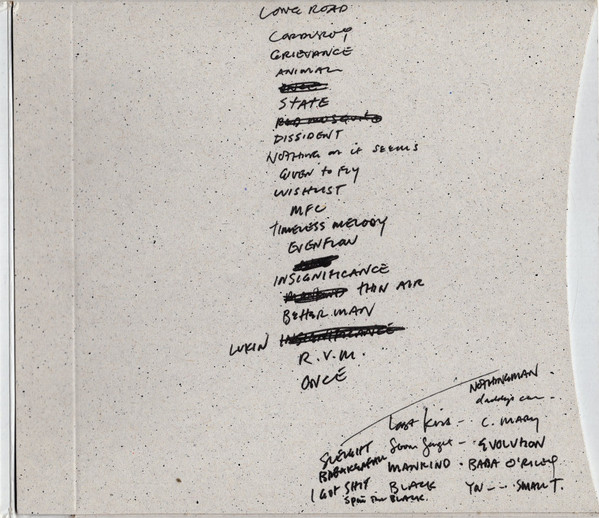 LONG ROAD
CORDUROY
GRIEVANCE
ANIMAL
STATE
RED MOSQUITO
DISSIDENT
NOTHING as it SEEMS
GIVEN to FLY
WISHLIST
MFC
TIMELESS MELODY
EVENFLOW
INSIGNIFICANCE
THIN AIR
BETTER MAN
LUKIN INSIGNIFICANCE
R.V.M.
ONCE
NOTHINGMAN -
daughter
LAST KISS - C. MARY
SLEIGHT EVOLUTION
BREAKERFALL MANKIND - BABA O'RILEY
I GOT SHIT BLACK YN --- SMALL T.
SPIN THE BLACK.